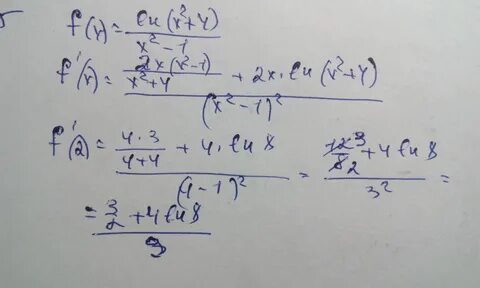 f(x) = ln(x²+4) / x²-1
f'(x) = 2x(x²-1) / x²+4 + 2x·ln(x²+4) / (x²-1)²
f'(2) = 4·3 / 4+4 + 4·ln8 / (4-1)² = 12 3 / 8 2 + 4 ln8 / 3² =
= 3/2 + 4 ln8 / 9